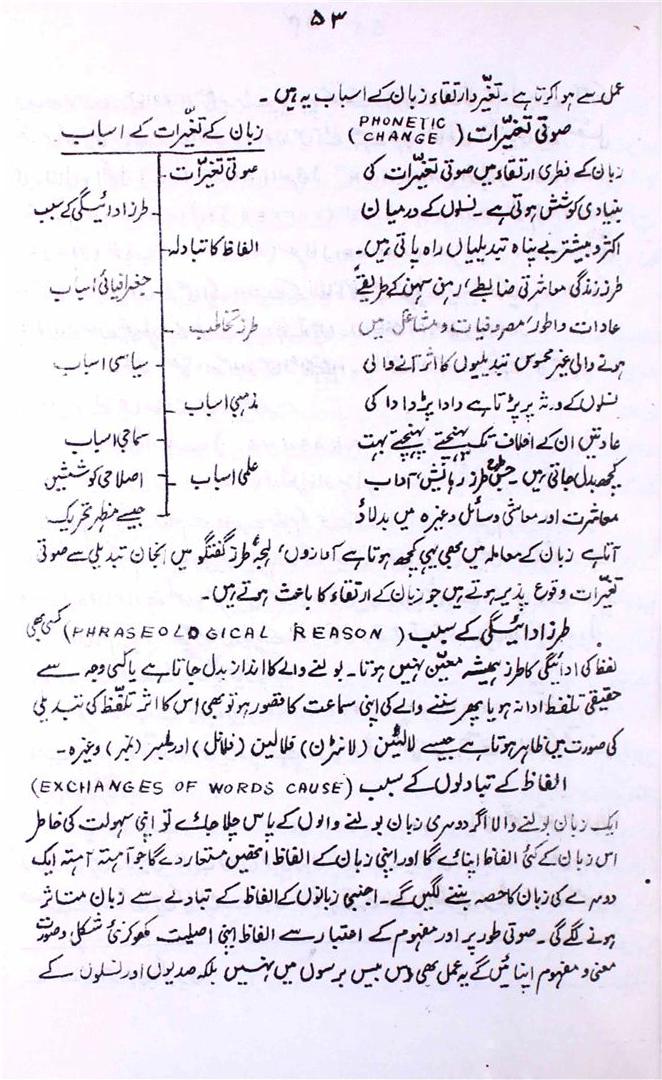 ۵۳
عمل سے ہوا کرتا ہے۔ تغیّر و ارتقاء زبان کے اسباب یہ ہیں۔
صوتی تغیّرات (PHONETIC CHANGE)
زبان کے فطری ارتقاء میں صوتی تغیّرات کی
بنیادی کوشش ہوتی ہے نسلوں کے درمیان
اکثر و بیشتر بے پناہ تبدیلیاں راہ پاتی ہیں۔
طرز زندگی معاشرتی ضابطے، رہن سہن کے طریقے
عادات و اطوار، مصروفیات و مشاغل میں
ہونے والی غیر محسوس تبدیلیوں کا اثر آنے والی
نسلوں کے ورثہ پر پڑتا ہے دادا پڑدادا کی
عادتیں ان کے اخلاف تک پہنچتے پہنچتے بہت
کچھ بدل جاتی ہیں۔ جس طرح طرز رہائش، آداب
معاشرت اور معاشی وسائل وغیرہ میں بدلاؤ
زبان کے تغیّرات کے اسباب
صوتی تغیّرات
طرز ادائیگی کے سبب
الفاظ کا تبادلہ
جغرافیائی اسباب
طرز تخاطب
سیاسی اسباب
مذہبی اسباب
سماجی اسباب
علمی اسباب
اصلاحی کوششیں
جیسے منظر تحریک
آتا ہے زبان کے معاملہ میں بھی یہی کچھ ہوتا ہے آوازوں، لہجۂ طرز گفتگو میں انجان تبدیلی سے صوتی
تغیّرات وقوع پذیر ہوتے ہیں جو زبان کے ارتقاء کا باعث ہوتے ہیں۔
طرز ادائیگی کے سبب (PHRASEOLOGICAL REASON) کسی بھی
لفظ کی ادائیگی کا طرز ہمیشہ معیّن نہیں ہوتا۔ بولنے والے کا انداز بدل جاتا ہے یا کسی وجہ سے
حقیقی تلفظ ادا نہ ہو یا پھر سننے والے کی اپنی سماعت کا قصور ہو تو بھی اس کا اثر تلفّظ کی تبدیلی
کی صورت میں ظاہر ہوتا ہے جیسے لالٹین (لانٹرن) فلالین (فلانل) اور لمبر (نمبر) وغیرہ۔
الفاظ کے تبادلوں کے سبب (EXCHANGES OF WORDS CAUSE)
ایک زبان بولنے والا اگر دوسری زبان بولنے والوں کے پاس چلا جائے تو اپنی سہولت کی خاطر
اس زبان کے کئی الفاظ اپنائے گا اور اپنی زبان کے الفاظ انھیں مستعار دے گا جو آہستہ آہستہ ایک
دوسرے کی زبان کا حصہ بننے لگیں گے۔ اجنبی زبانوں کے الفاظ کے تبادلے سے زبان متاثر
ہونے لگے گی۔ صوتی طور پر اور مفہوم کے اعتبار سے الفاظ اپنی اصلیت کھو کر نئی شکل و صورت
معنی و مفہوم اپنائیں گے یہ عمل بھی دس بیس برسوں میں نہیں بلکہ صدیوں اور نسلوں کے